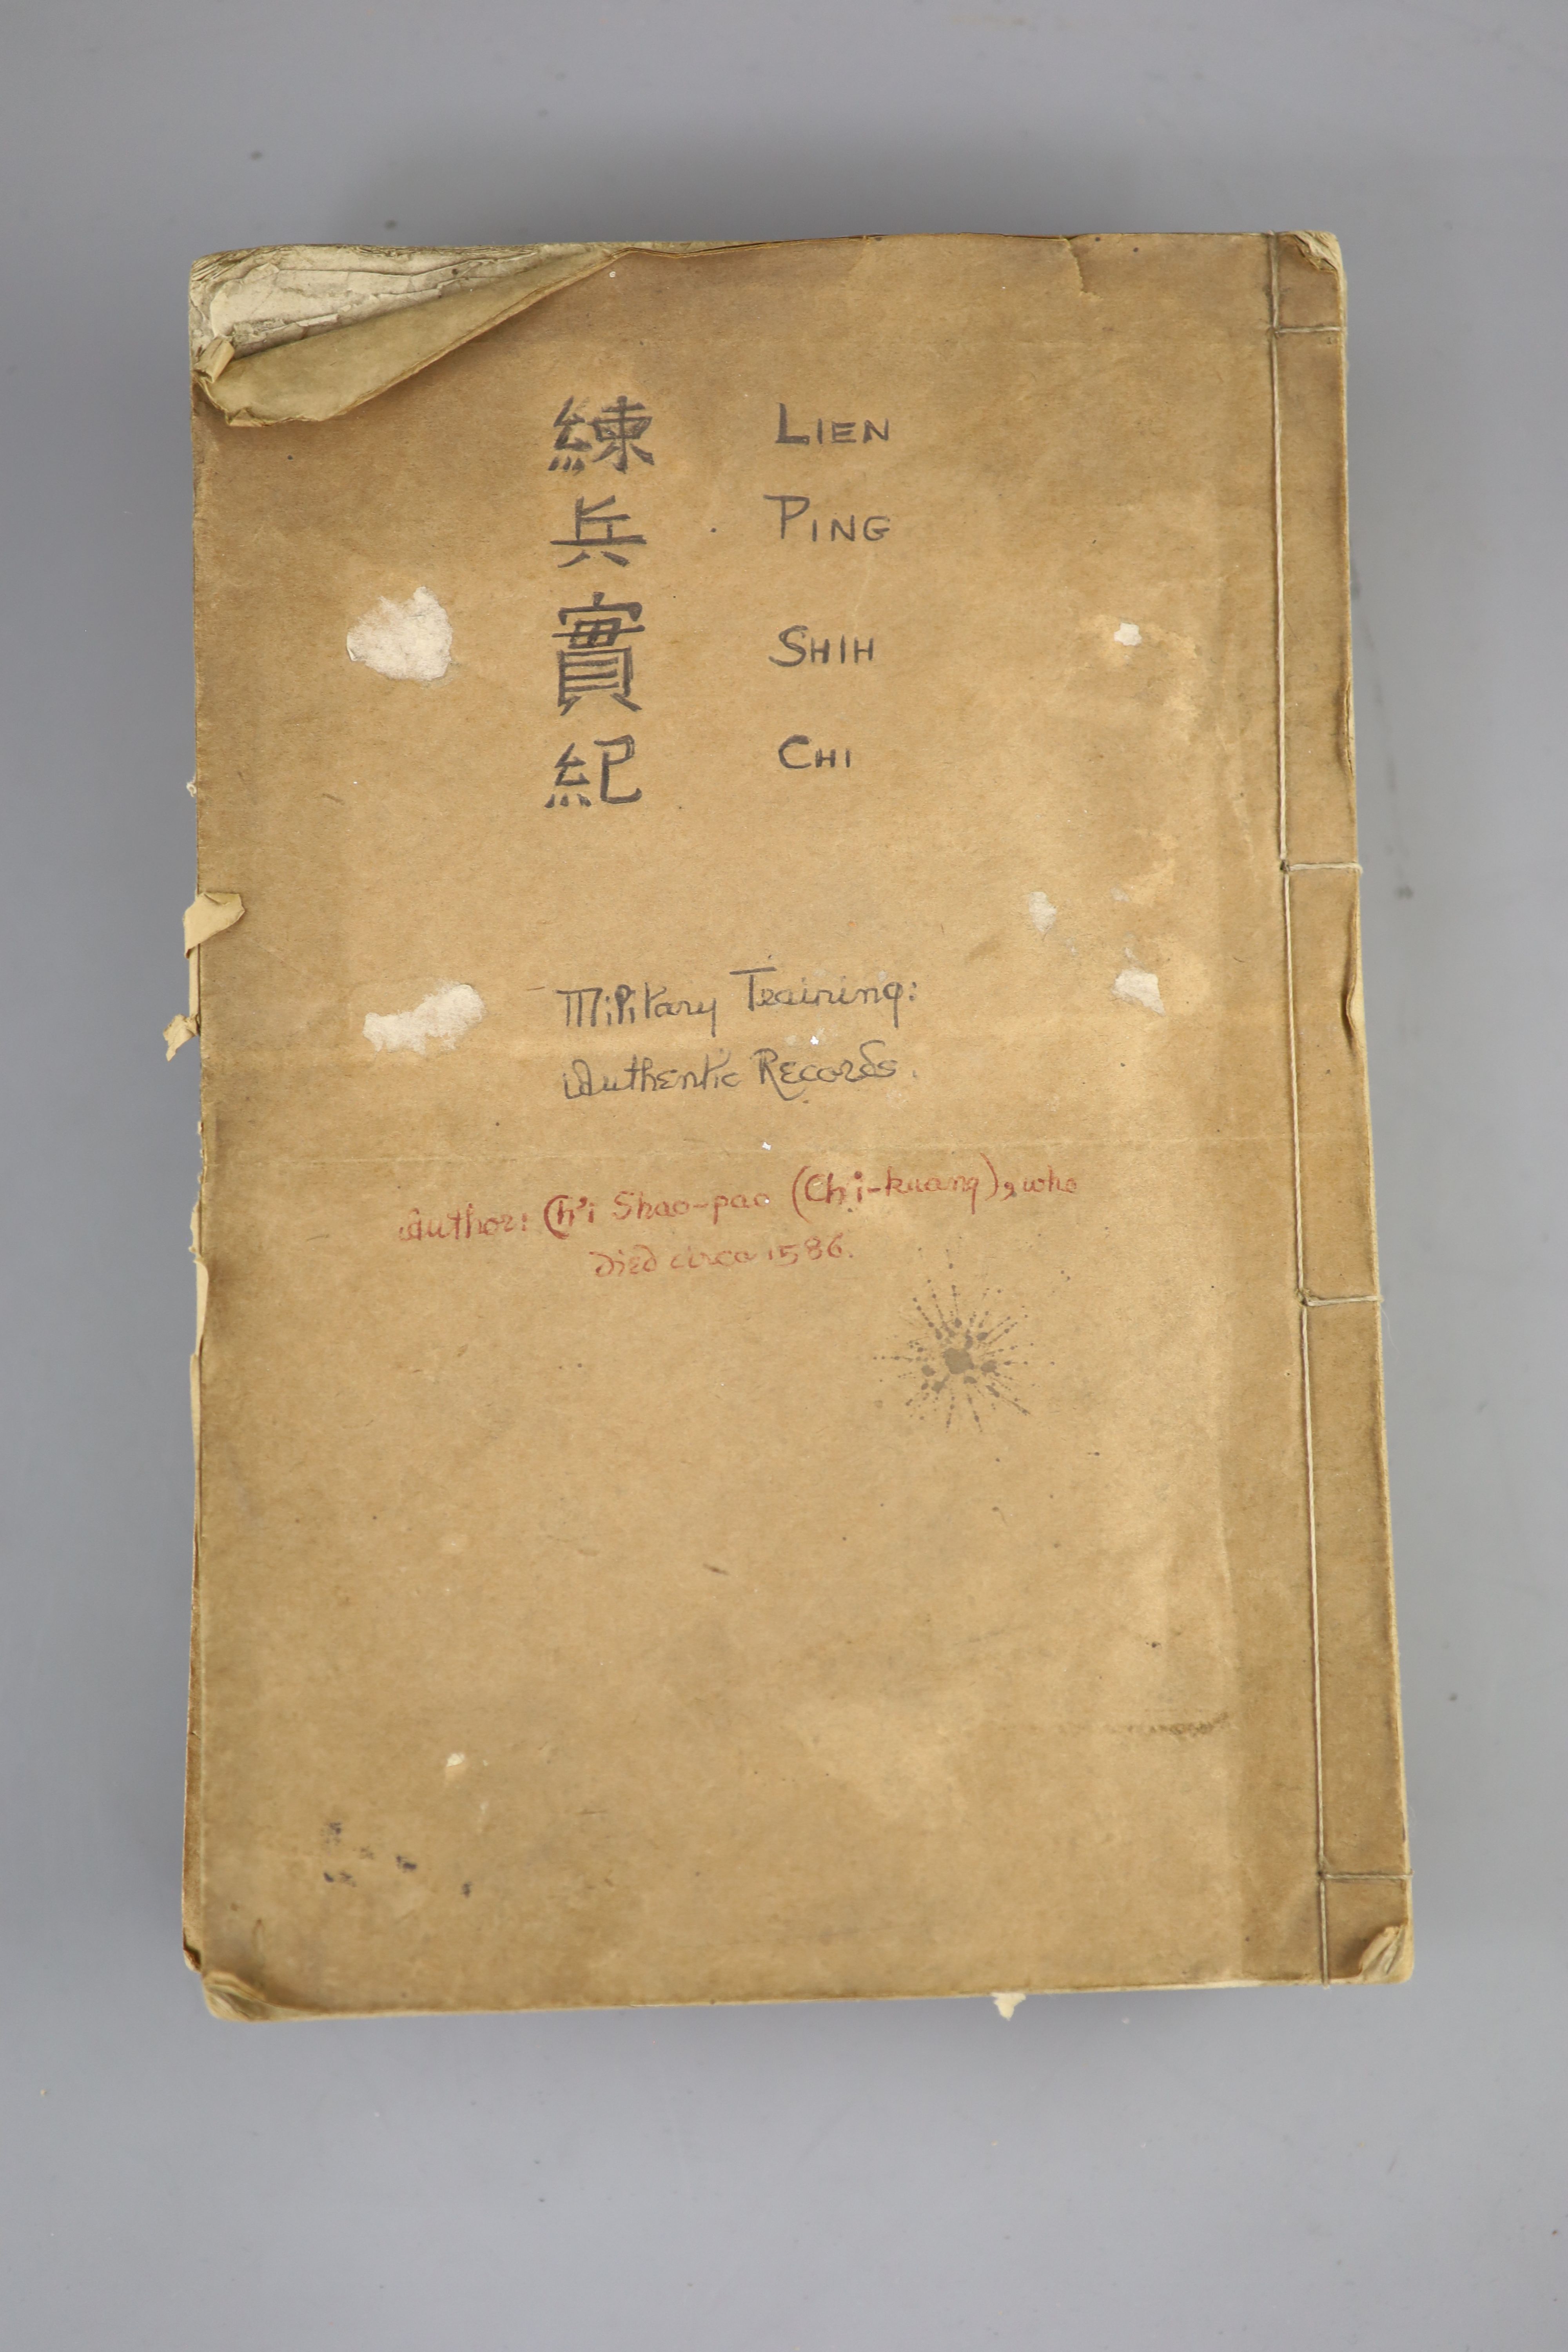 練兵實紀
LIEN
PING
SHIH
CHI
Military Training:
Authentic Records.
Author: Ch'i Shao-pao (Ch'i-kuang), who
died circa 1586.